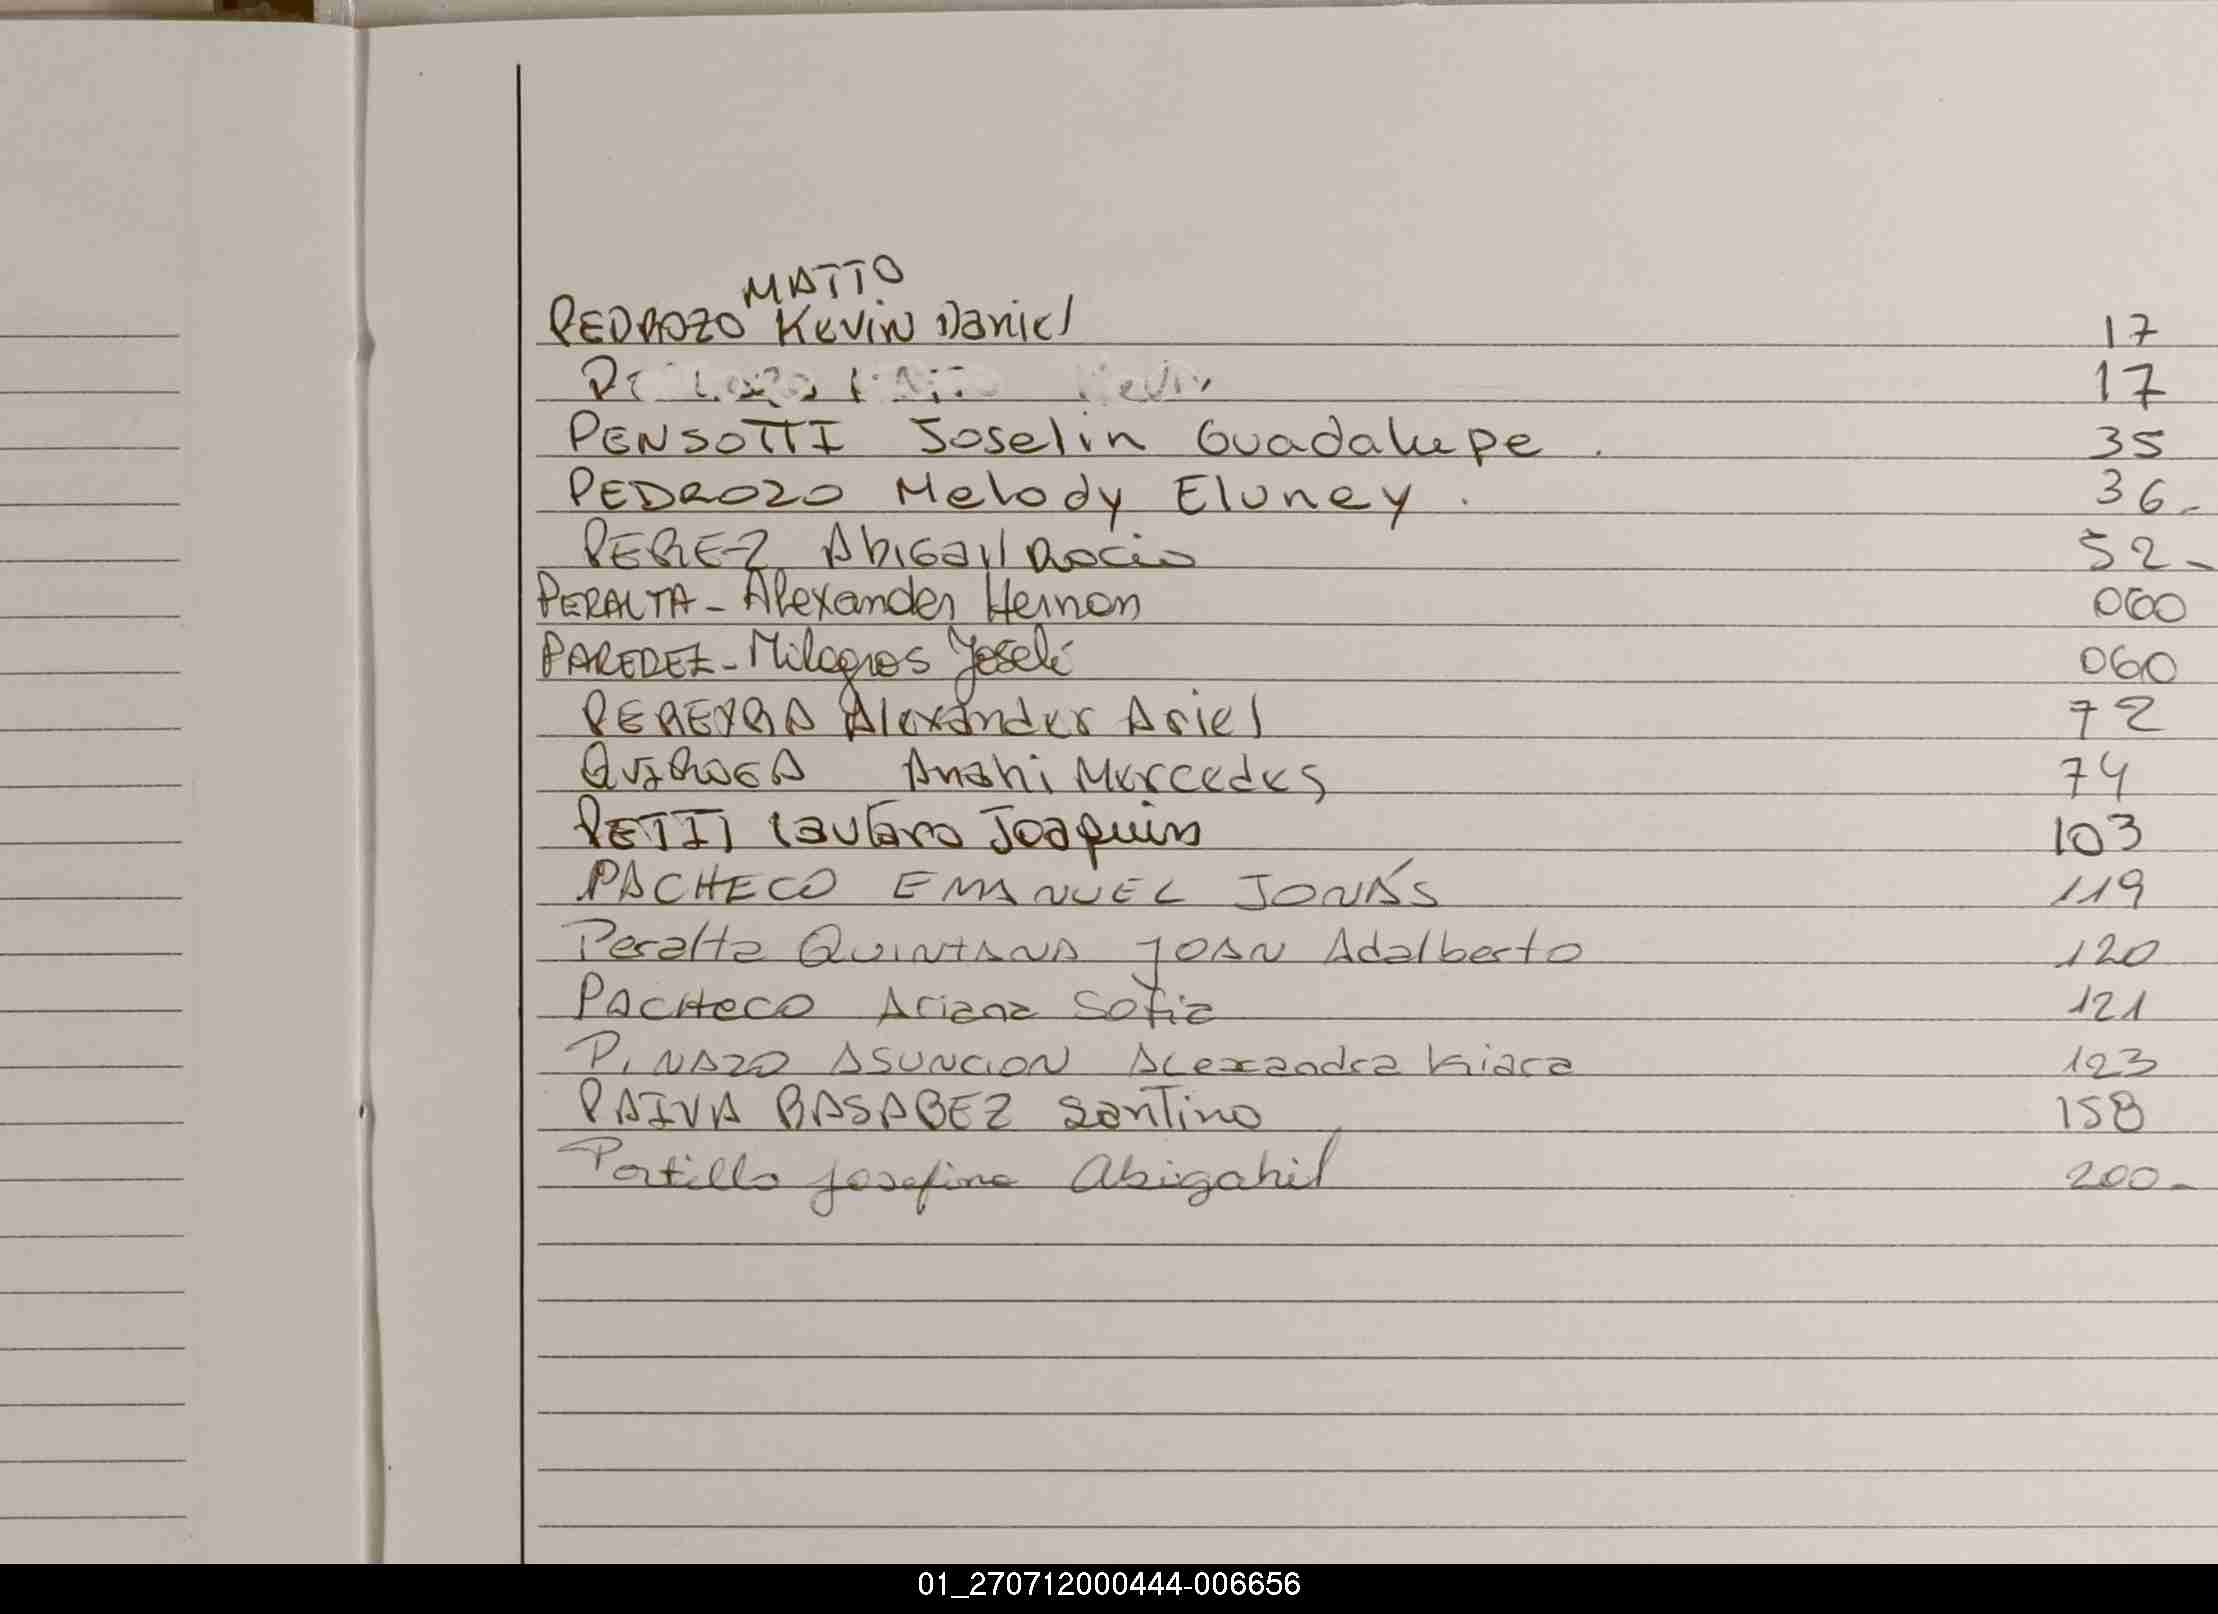 MATTO
PEDROZO Kevin Daniel 17
17
PENSOTTI Joselin Guadalupe . 35
PEDROZO Melody Eluney . 36-
PEREZ Abigail Rocio 52-
PERALTA - Alexander Hernan 060
PAREDEZ - Milagros 060
PEREYRA Alexander Ariel 72
QUIROGA Anahi Mercedes 74
PETIT Lautaro Joaquin 103
PACHECO EMANUEL JONÁS 119
Peralta QUINTANA JOAN Adalberto 120
PACHECO Ariana Sofia 121
PINAZO ASUNCION ALexandra Kiara 123
PAIVA BASABEZ Santino 158
Portillo Josefina Abigahil 200-
01_270712000444-006656